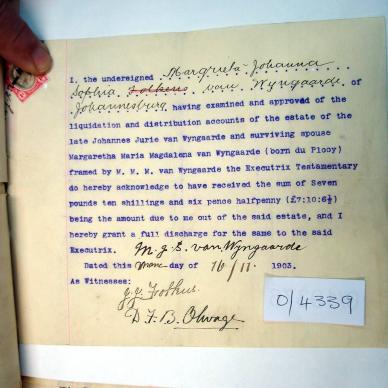 I, the undersigned Margreta Johanna
Sophia Folkers van Wyngaarde of
Johannesburg having examined and approved of the
liquidation and distribution accounts of the estate of the
late Johannes Jurie van Wyngaarde and surviving spouse
Margaretha Maria Magdalena van Wyngaarde (born du Plooy)
framed by M. M. M. van Wyngaarde the Executrix Testamentary
do hereby acknowledge to have received the sum of Seven
pounds ten shillings and six pence halfpenny (£7:10:6½)
being the amount due to me out of the said estate, and I
hereby grant a full discharge for the same to the said
Executrix. M. J. S. van Wyngaarde
Dated this day of 16/11 1903.
As Witnesses:
D. F. B. Olwage
0/4339